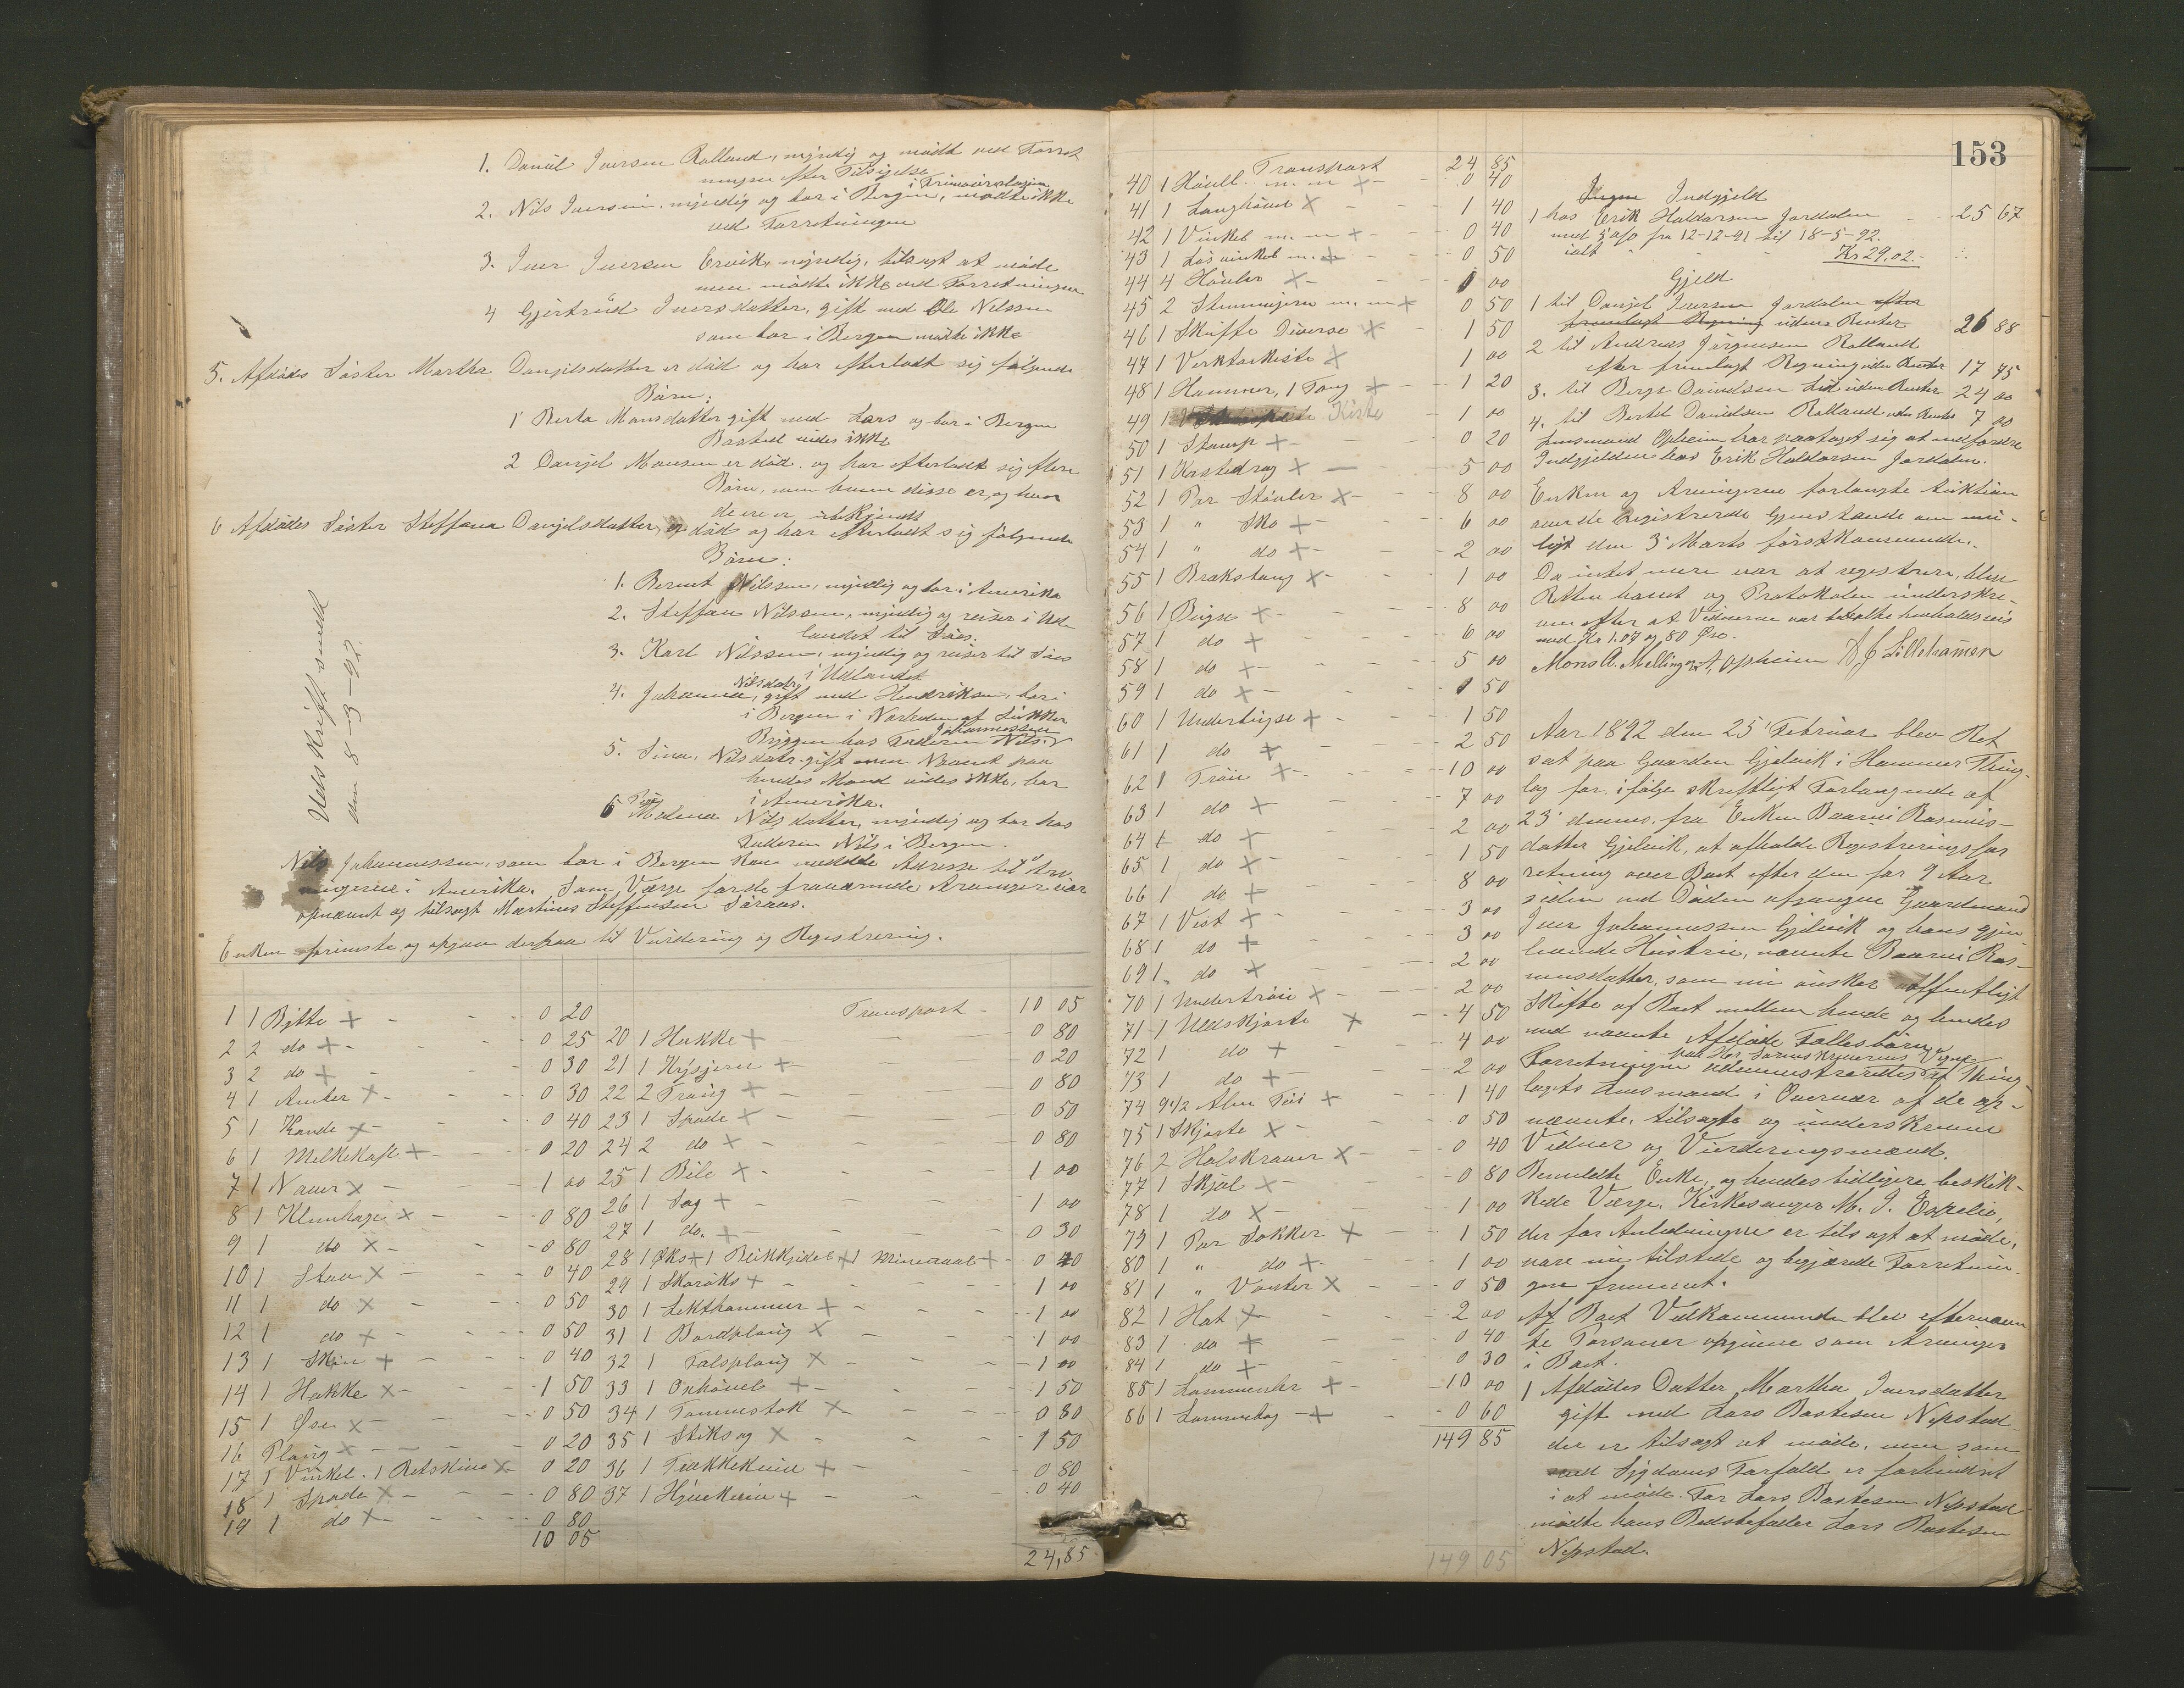 1. Daniel Iversen Rolland, myndig og mödte ved Forret
ningen efter Tilsigelse
i Krinsvorstasjon
2. Nils Iversen, myndig og bor i Bergen, mödte ikke
ved Forretningen
3. Iver Iversen Ervik, myndig, tilsagt at möde
men mödte ikke ved Forretningen
4 Gjertrud Iversdatter, gift med Ole Nilssen
som bor i Bergen mödte ikke
5. Afdödes Söster Martha Danjelsdatter er död og har efterladt sig fölgende
Börn:
1 Berta Monsdatter gift med Lars og bor i Bergen
Bosted vides ikke
2 Danjel Monsen er död. og har efterladt sig flere
Börn, men hvem disse er, og hvor
de ere er ubekjendt
6 Afdödes Söster Steffana Danjelsdatter, er död og har efterladt sig fölgende
Börn:
1. Bernt Nilssen, myndig og bor i Amerika
2. Steffen Nilssen, myndig og reiser i Ud-
landet til Söes.
3. Karl Nilssen, myndig og reiser til Söes
i Udlandet
4. Johanna Nilsdatr, gift med Hendriksen, bor i
i Bergen i Nærheden af Sukker
Bryggen hos Faderen Nils Johannessen
5. Sina, Nilsdatr. gift men Navnet paa
hendes Mand vides ikke, bor
i Amerika.
6 Pige Malena Nilsdatter, myndig og bor hos
Faderen Nils i Bergen.
Nils Johannessen, som bor i Bergen kan meddele Adresse til Ar-
vingerne i Amerika. Som Værge for de fraværende Arvinger var
opnævnt og tilsagt Martinus Steffensen Söraas.
Enken fremviste og opgav derpaa til Vurdering og Registrering.
Udskrift sendt
den 8-3-92.
1 1 Bytte + 0 20
2 2 do + 0 25
3 2 do + 0 30
4 1 Anker x 0 30
5 1 Kande x 0 40
6 1 Melkekolle + 0 20
7 1 Naver x 1 00
8 1 Klinhage x 0 80
9 1 do x 0 80
10 1 Staur x 0 40
11 1 do x 0 50
12 1 do + 0 50
13 1 Skrin + 0 40
14 1 Hakke x 1 50
15 1 Öse x 0 50
16 Plaug x 0 20
17 1 Vinkel. 1 Retskinne x 0 20
18 1 Spade x 0 80
19 1 do x 0 80
10 05
Transport 10 05
20 1 Hakke + 0 80
21 1 Krysjern + 0 20
22 2 Traug + 0 80
23 1 Spade x 0 50
24 2 do x 0 80
25 1 Bile x 1 00
26 1 Sag + 1 00
27 1 do. + 0 30
28 1 Öks + 1 Blikkjedel + 1 Minenaal + 0 40
29 1 Skaröks + 1 00
30 1 Lekthammer + 1 00
31 1 Bordplaug x 1 00
32 1 Falsplaug x 1 00
33 1 Okhövel + 1 50
34 1 Tommestok x 0 80
35 1 Stiksag x 1 50
36 1 Trækkekniv + 0 80
37 1 Hjuekniv + 0 40
24,85
153
Transport 24 85
40 1 Hövel m. m + 0 40
41 1 Langhövel x 1 40
42 1 Vinkel m. m + 0 40
43 1 Løsvinkel m. m + 0 50
44 4 Hövler x 1 00
45 2 Stemmejern m. m x 0 50
46 1 Skuffe Diverse x 1 50
47 1 Verktøikiste x 1 00
48 1 Hammer, 1 Tang x 1 20
49 1 Kiste 1 00
50 1 Stamp + 0 20
51 1 Kastedrag x 5 00
52 1 Par Stövler x 8 00
53 1 " Sko + 6 00
54 1 " do + 2 00
55 1 Brækstang x 1 00
56 1 Buxe x 8 00
57 1 do + 6 00
58 1 do + 5 00
59 1 do x 1 50
60 1 Underbuxse x 1 50
61 1 do + 2 50
62 1 Tröie + 10 00
63 1 do + 7 00
64 1 do + 2 00
65 1 do + 1 50
66 1 do + 8 00
67 1 Vest + 3 00
68 1 do + 3 00
69 1 do + 2 00
70 1 Undertröie x 2 00
71 1 Uldskjorte x 4 50
72 1 do + 4 00
73 1 do + 2 00
74 9 1/2 Alen Töi + 1 40
75 1 Skjorte x 0 50
76 2 Halskraver x 0 40
77 1 Skjöl x 0 80
78 1 do x 1 00
79 1 Par Sokker x 1 50
80 1 " do + 1 00
81 1 " Vanter x 0 50
82 1 Hat x 2 00
83 1 do + 0 40
84 1 do + 0 30
85 1 Lommeuhr + 10 00
86 1 Lommebog + 0 60
149 85
149 05
Ingen Indgjeld
1 hos Erik Haldorsen Jordalen 25 67
med 5 o/o fra 12-12-91 til 18-5-92.
ialt Kr 29.02.-
Gjeld
1 til Danjel Iversen Jordalen efter
fremlagt Regning uden Renter 26 88
2 til Andreas Jörgensen Rolland
efter fremlagt Regning uden Renter 17 45
3. til Berge Danielsen Lid uden Renter 24 00
4. til Bertel Danielsen Rolland uden Renter 7 00
Lensmand Opheim har paataget sig at indfordre
Indgjelden hos Erik Haldorsen Jordalen.
Enken og Arvingerne forlangte Auktion
over de registrerede Gjenstande om mu-
ligt den 3' Marts förstkommende.
Da intet mere var at registrere, blev
Retten hævet og Protokolen underskre-
ven efter at Vidnerne var betalte henholdsvis
med Kr 1.07 og 80 Öre.
Mons A. Mellingen A, Opheim A J Lillehammer
Aar 1892 den 25' Februar blev Ret
sat paa Gaarden Gjelvik i Hammer Thing-
lag for, ifölge skriftligt Forlangende af
23' dennes, fra Enken Baarni Rasmus-
datter Gjelvik, at afholde Registreringsfor
retning over Boet efter den for 9 Aar
siden ved Döden afgangne Gaardmand
Iver Johannessen Gjelvik og hans gjen
levende Hustru, nævnte Baarni Ras-
musdatter, som nu önsker offentligt
Skifte af Boet mellem hende og hendes
med nævnte Afdöde Fællesbörn.
paa Hr. Sorenskriverens Vegne
Forretningen administreredes af Thing-
lagets Lensmand i Overvær af de op-
nævnte, tilsagte og underskrevne
Vidner og Vurderingsmænd.
Bemeldte Enke, og hendes tidligere beskik-
kede Værge, Kirkesanger M. J. Espelid,
der for Anledningen er tilsagt at möde,
vare nu tilstede og begjærede Forretnin-
gen fremmet.
Af Boet Vedkommende blev eftermævn
te Personer opgivne som Arvinger
i Boet.
1 Afdödes Datter Martha Iversdatter
gift med Lars Bastesen Nepstad
der er tilsagt at möde, men som
ved Sygdoms Forfald er forhindret
i at möde. For Lars Bastesen Nepstad
mödte hans Bedstefader Lars Bastesen
Nepstad.